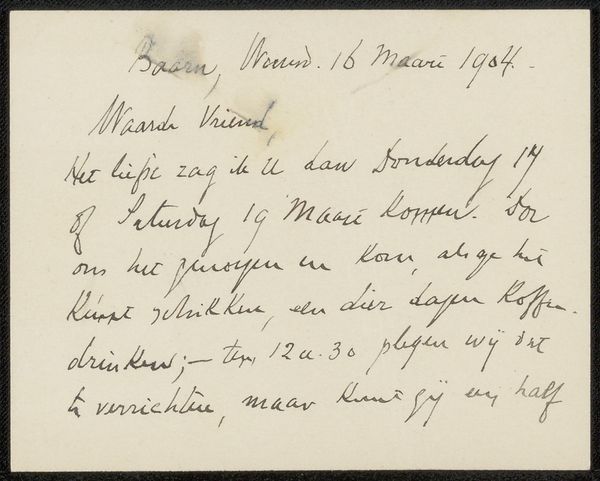 Baarn, Woensd. 16 Maart 1904.
Waarde Vriend,
Het liefst zag ik U dan Donderdag 17
of Saturdag 19 Maart komen. Doe
ons het genoegen en kom, als ge het
kunt schikken, een dier dagen koffie-
drinken; – ten 12 u. 30 plegen wij dat
te verrichten, maar kunt gij een half